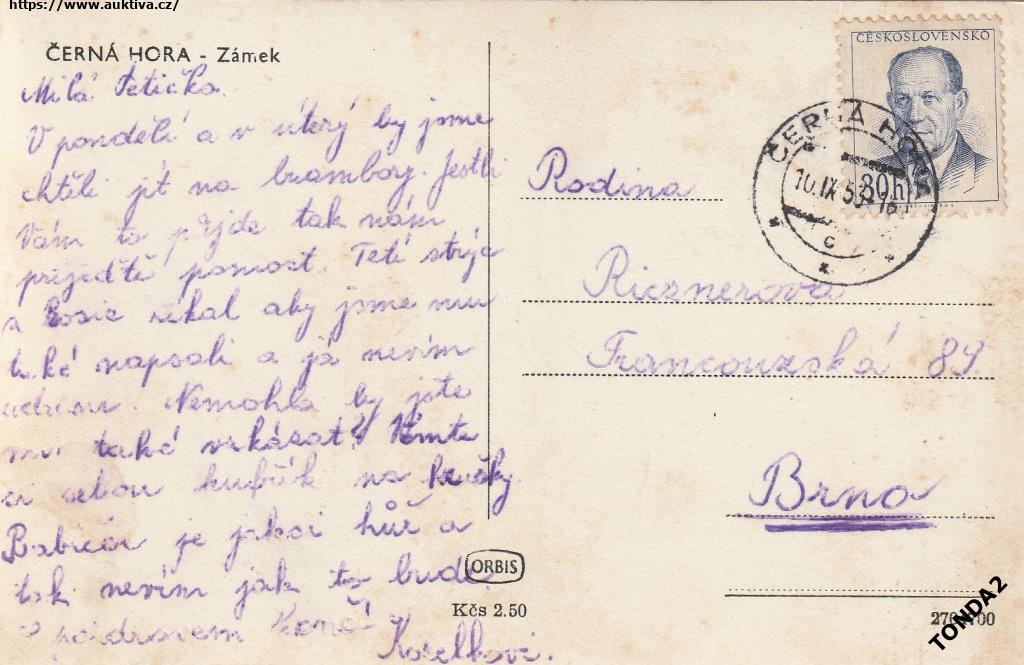 https://www.auktiva.cz/
ČERNÁ HORA - Zámek
Milá Tetičko.
V pondělí a v úterý by jsme
chtěli jít na brambory. Jestli
Vám to přijde tak nám
přijeďtě pomoct. Teté strýc
z Rosic říkal aby jsme mu
také napsali a já nevím
adresu. Nemohla by jste
mu také vzkázat? Vemte
si sebou kufřík na hrušky.
Babičce je jaksi hůř a
tak nevím jak to bude.
S pozdravem končí
Koselkovi.
ČESKOSLOVENSKO
30h
ČERNÁ HORA
10.IX.53
c
Rodina
Ricznerova
Francouzská 89.
Brno
ORBIS
Kčs 2.50
TONDA2